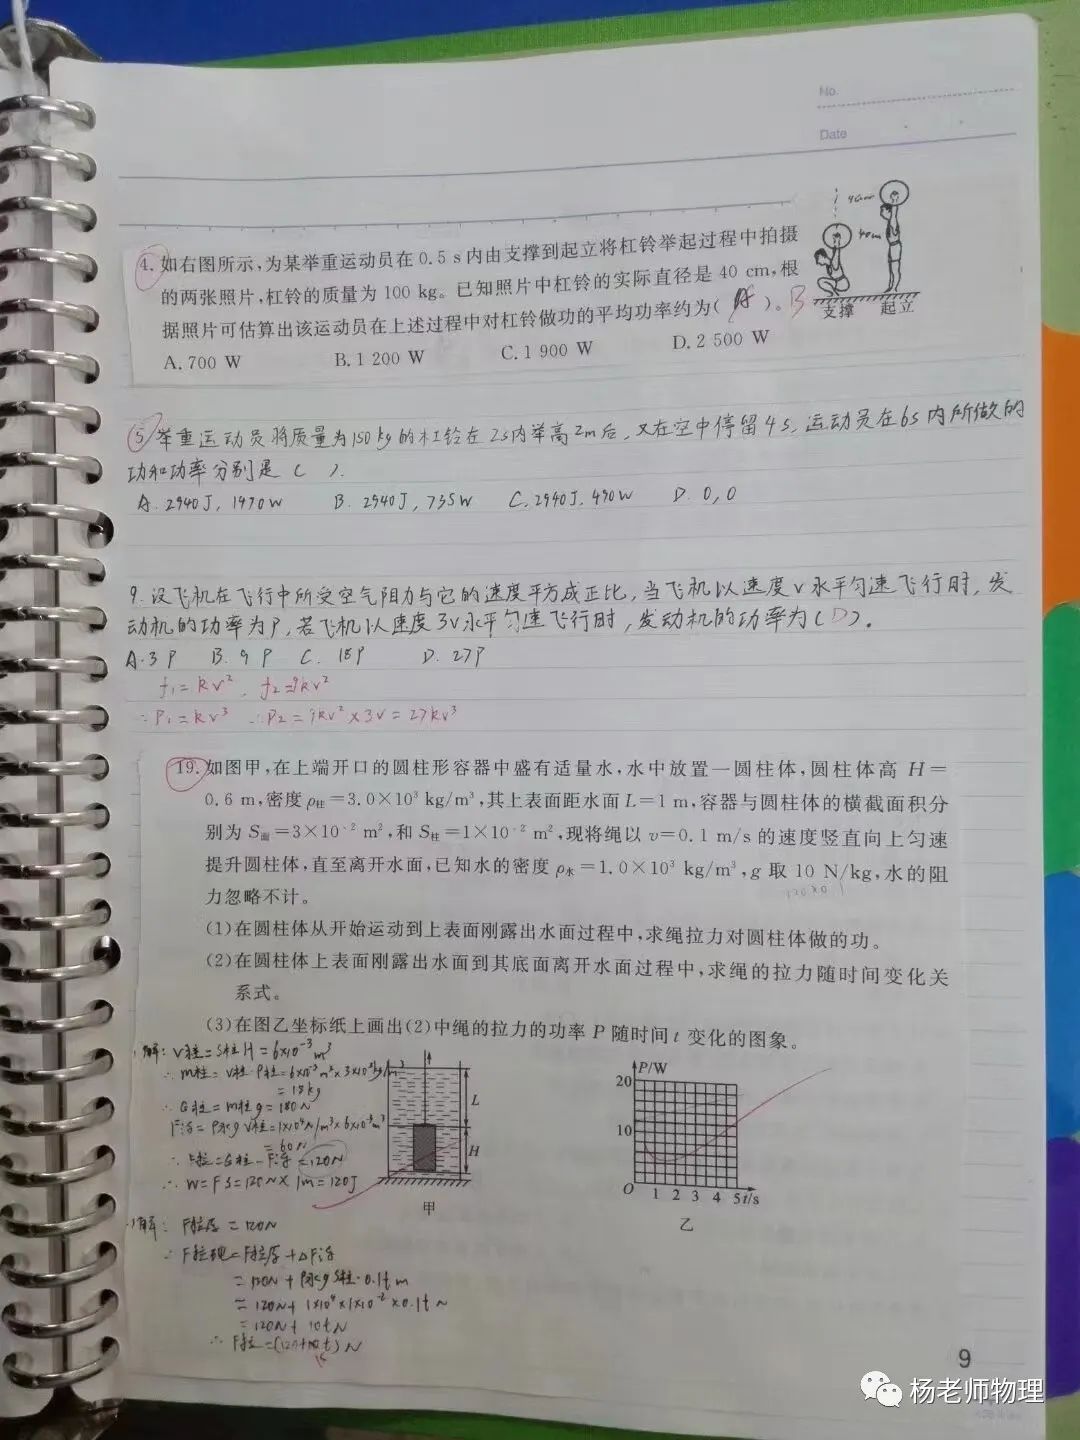 No.
Date
4. 如右图所示,为某举重运动员在0.5 s内由支撑到起立将杠铃举起过程中拍摄
的两张照片,杠铃的质量为100 kg。已知照片中杠铃的实际直径是40 cm,根
据照片可估算出该运动员在上述过程中对杠铃做功的平均功率约为( )。B
A. 700 W B. 1 200 W C. 1 900 W D. 2 500 W
支撑 起立
5 举重运动员将质量为150kg的杠铃在2s内举高2m后,又在空中停留4s,运动员在6s内所做的
功和功率分别是( ).
A. 2940J, 1470W B. 2940J, 735W C. 2940J, 490W D. 0, 0
9. 设飞机在飞行中所受空气阻力与它的速度平方成正比,当飞机以速度v水平匀速飞行时,发
动机的功率为P,若飞机以速度3v水平匀速飞行时,发动机的功率为(D)。
A. 3P B. 9P C. 18P D. 27P
f₁=kv², f₂=9kv²
∴P₁=kv³ ∴P₂=9kv²×3v=27kv³
19. 如图甲,在上端开口的圆柱形容器中盛有适量水,水中放置一圆柱体,圆柱体高 H=
0.6 m,密度 ρ柱=3.0×10³ kg/m³,其上表面距水面L=1 m,容器与圆柱体的横截面积分
别为 S面=3×10⁻² m²,和 S柱=1×10⁻² m²,现将绳以 v=0.1 m/s 的速度竖直向上匀速
提升圆柱体,直至离开水面,已知水的密度 ρ水=1.0×10³ kg/m³,g 取 10 N/kg,水的阻
力忽略不计。
(1)在圆柱体从开始运动到上表面刚露出水面过程中,求绳拉力对圆柱体做的功。
(2)在圆柱体上表面刚露出水面到其底面离开水面过程中,求绳的拉力随时间变化关
系式。
(3)在图乙坐标纸上画出(2)中绳的拉力的功率 P 随时间 t 变化的图象。
解: V柱=S柱H=6×10⁻³m³
∴m柱=V柱·ρ柱=6×10⁻³m³×3×10³kg/m³
=18kg
∴G柱=m柱g=180N
F浮=ρ水gV柱=1×10⁴N/m³×6×10⁻³m³
=60N
∴F拉=G柱-F浮=120N
∴W=FS=120N×1m=120J
L
H
甲
P/W
20
10
O 1 2 3 4 5 t/s
乙
解: F拉原=120N
∴F拉现=F拉原+ΔF浮
=120N+ρ水gS柱·0.1t m
=120N+1×10⁴×1×10⁻²×0.1t N
=120N+10t N
9
杨老师物理